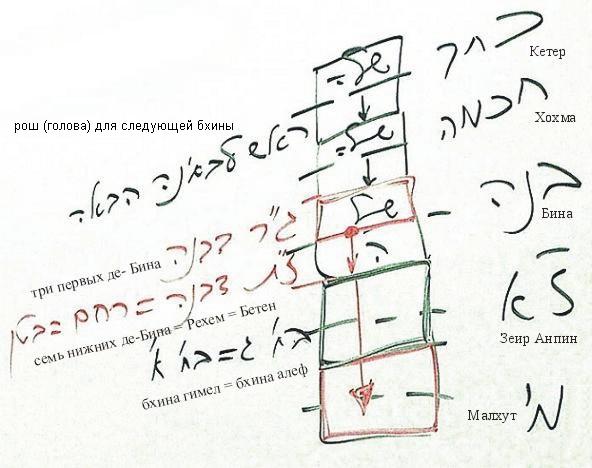 כתר
Кетер
חכמה
Хохма
рош (голова) для следующей бхины
ראש הבאה
בנה
Бина
ג"ר דבנה
три первых де- Бина
ה
ז"ת דבנה = רחם = בטן
семь нижних де-Бина = Рехем = Бетен
ז"א
Зеир Анпин
בח' ג = בח' א
бхина гимел = бхина алеф
מ'
Малхут